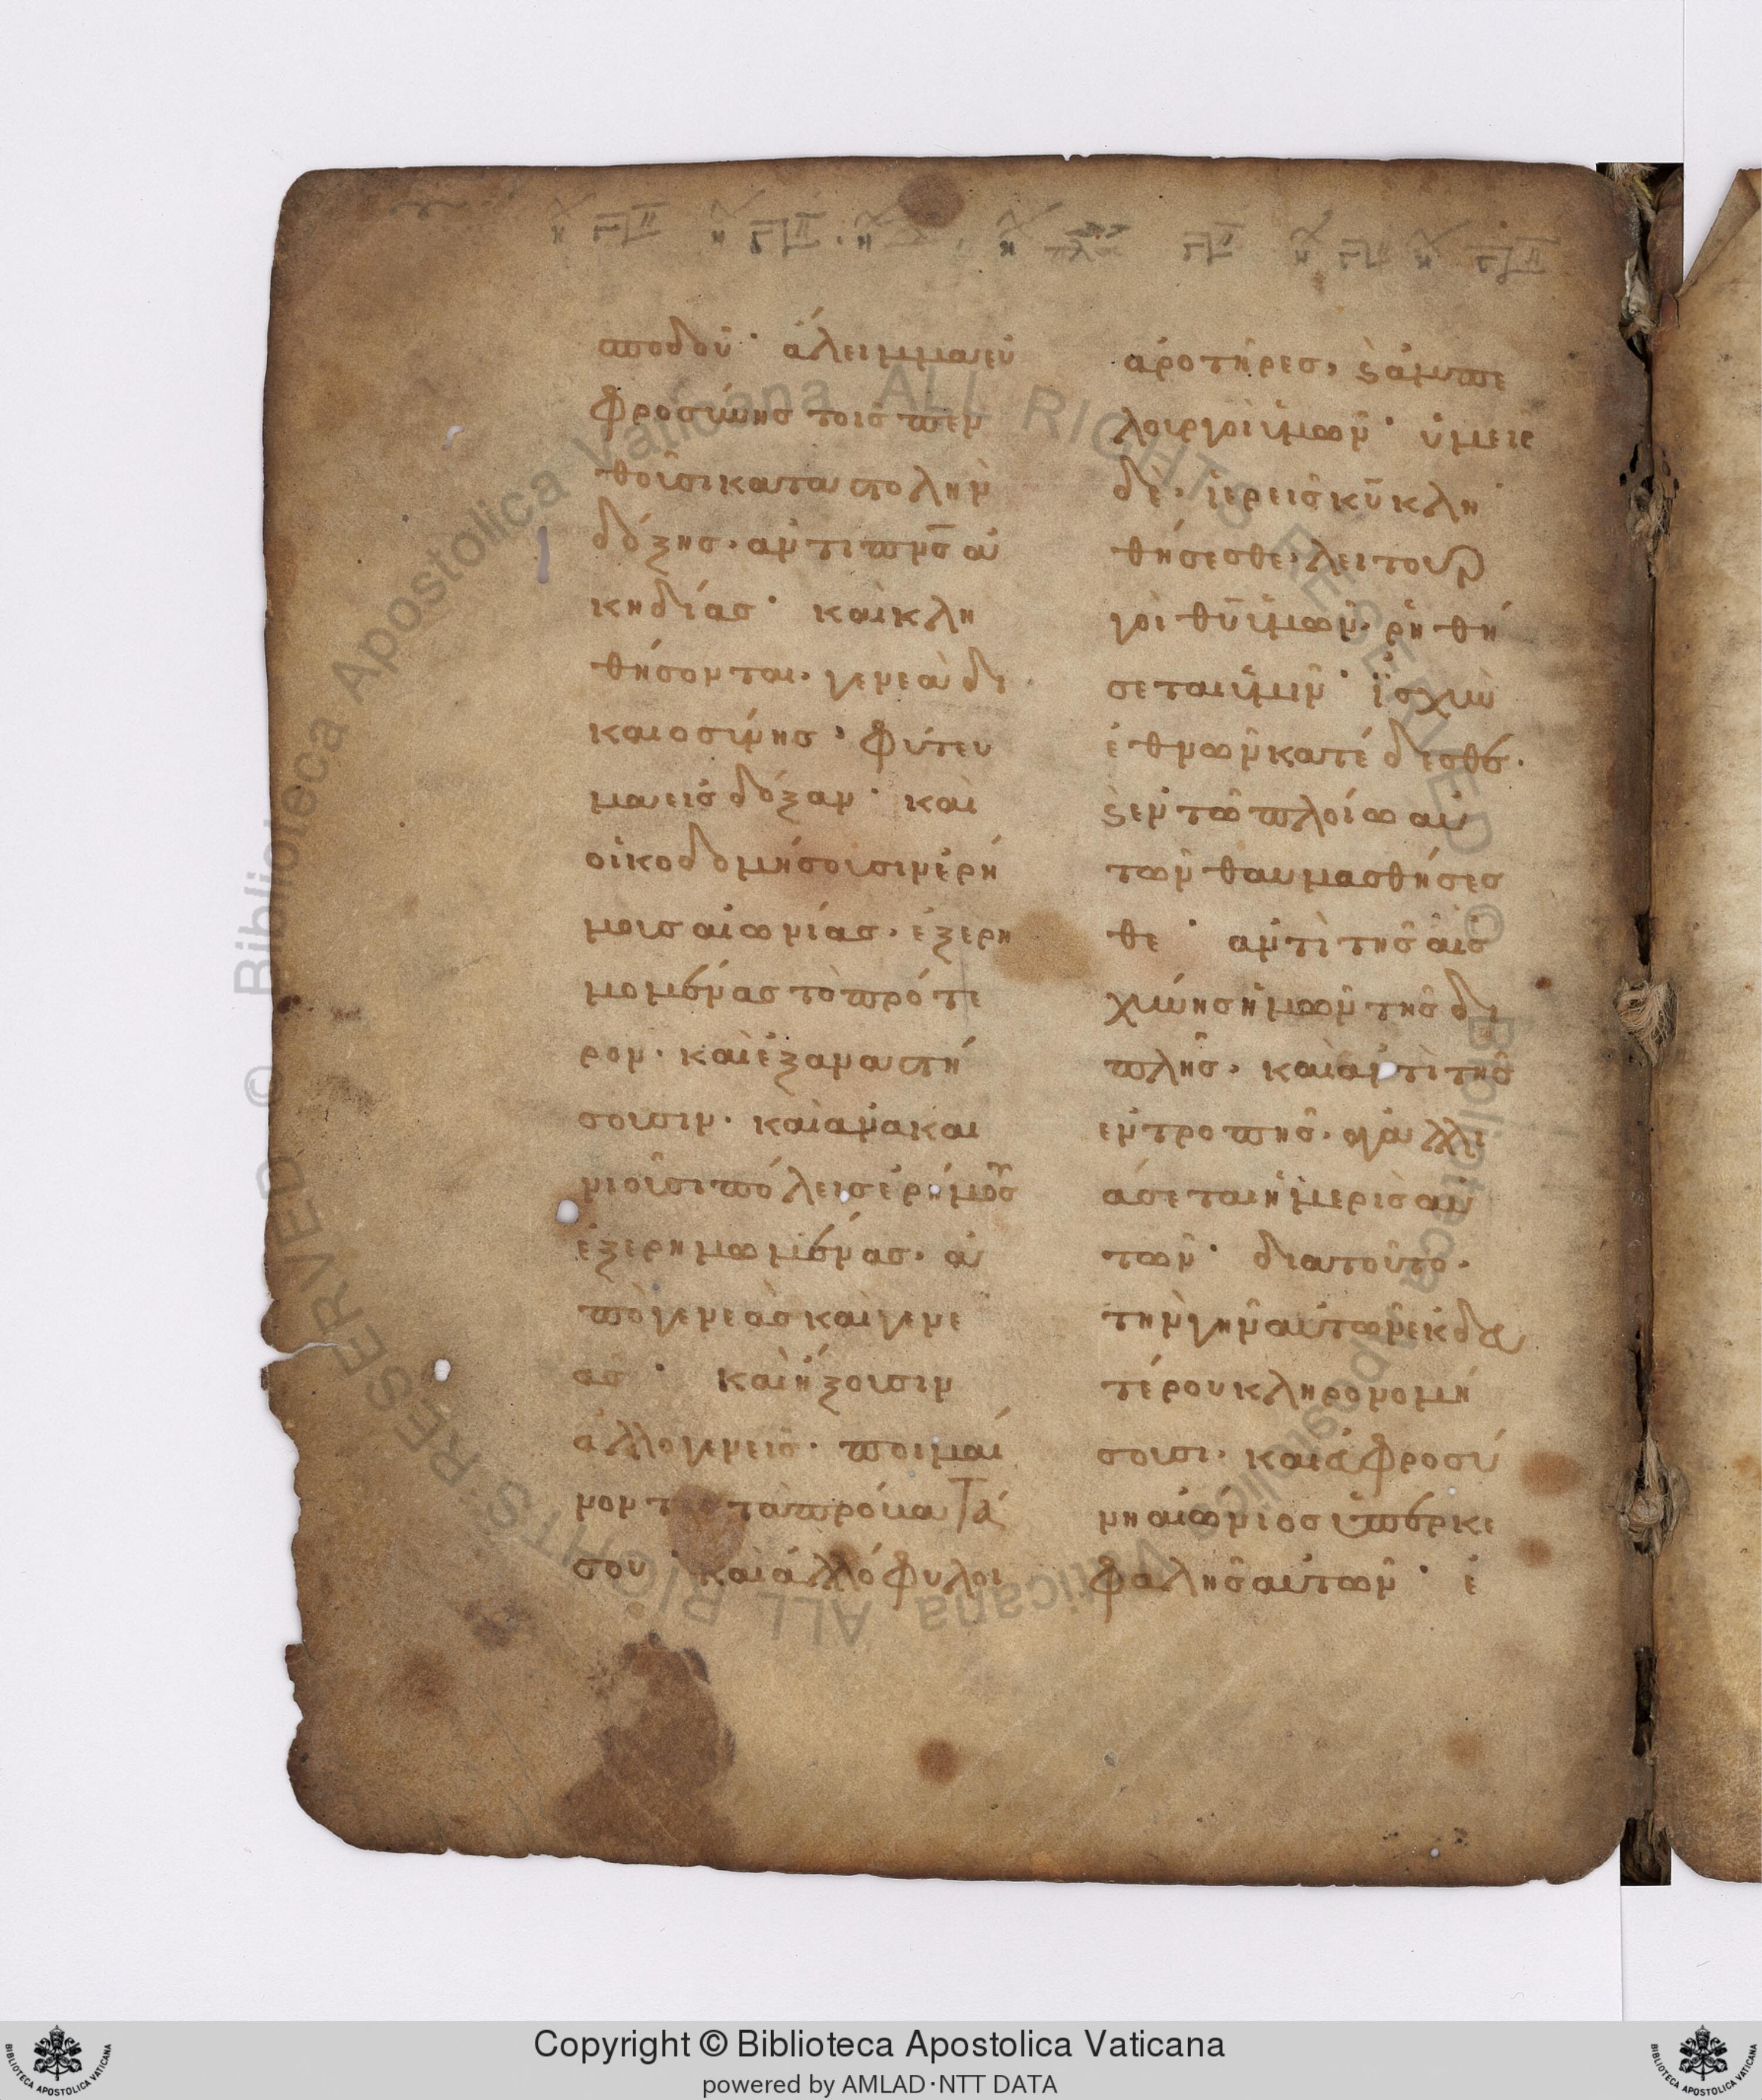 σποδοῦ· ἄλειμμα εὐ
φροσύνης τοῖς πεν
θοῦσι καταστολὴν
δόξης· ἀντὶ πνς ἀ
κηδίας· καὶ κλη
θήσονται· γενεὰ δι
καιοσύνης· φύτευ
μα εἰς δόξαν· καὶ
οἰκοδομήσουσιν ἐρή
μους αἰωνίας· ἐξερη
μομένας τὸ πρότε
ρον· καὶ ἐξαναστή
σουσιν· καὶ ανακαι
νιοῦσι πόλεις ἐρήμους
ἐξερημωμένας· ἀ
πὸ γενεὰς καὶ γενε
ας· καὶ ἥξουσιν
ἀλλογενεῖς· ποιμαί
νοντες τὰ πρόβατά
σου· καὶ ἀλλόφυλοι
ἀροτῆρες, ϛ ἀμπε
λουργοὶ ὑμῶν· ὑμεῖς
δὲ· ἱερεῖς κῡ κλη
θήσεσθε· λειτουρ
γοὶ θῡ ὑμῶν· ῥηθή
σεται ὑμῖν· ἰσχὺν
ἐθνῶν κατέδεσθε·
ϛ ἐν τῶ πλοίω αὐ
τῶν θαυμασθήσεσ
θε· ἀντὶ τῆς αἰσ
χύνης ἡμῶν τῆς δι
πλῆς· καὶ ἀντὶ τῆς
ἐντροπῆς· ἀγαλλι
άσεται ἡ μερὶς αὐ
τῶν· διατοῦτο·
τὴν γῆν αὐτῶν ἐκ δευ
τέρου κληρονομή
σουσι· καὶ ἀφροσύ
νη αἰώνιος ὑπέρ κε
φαλῆς αὐτῶν· ἐ
Copyright © Biblioteca Apostolica Vaticana
powered by AMLAD·NTT DATA